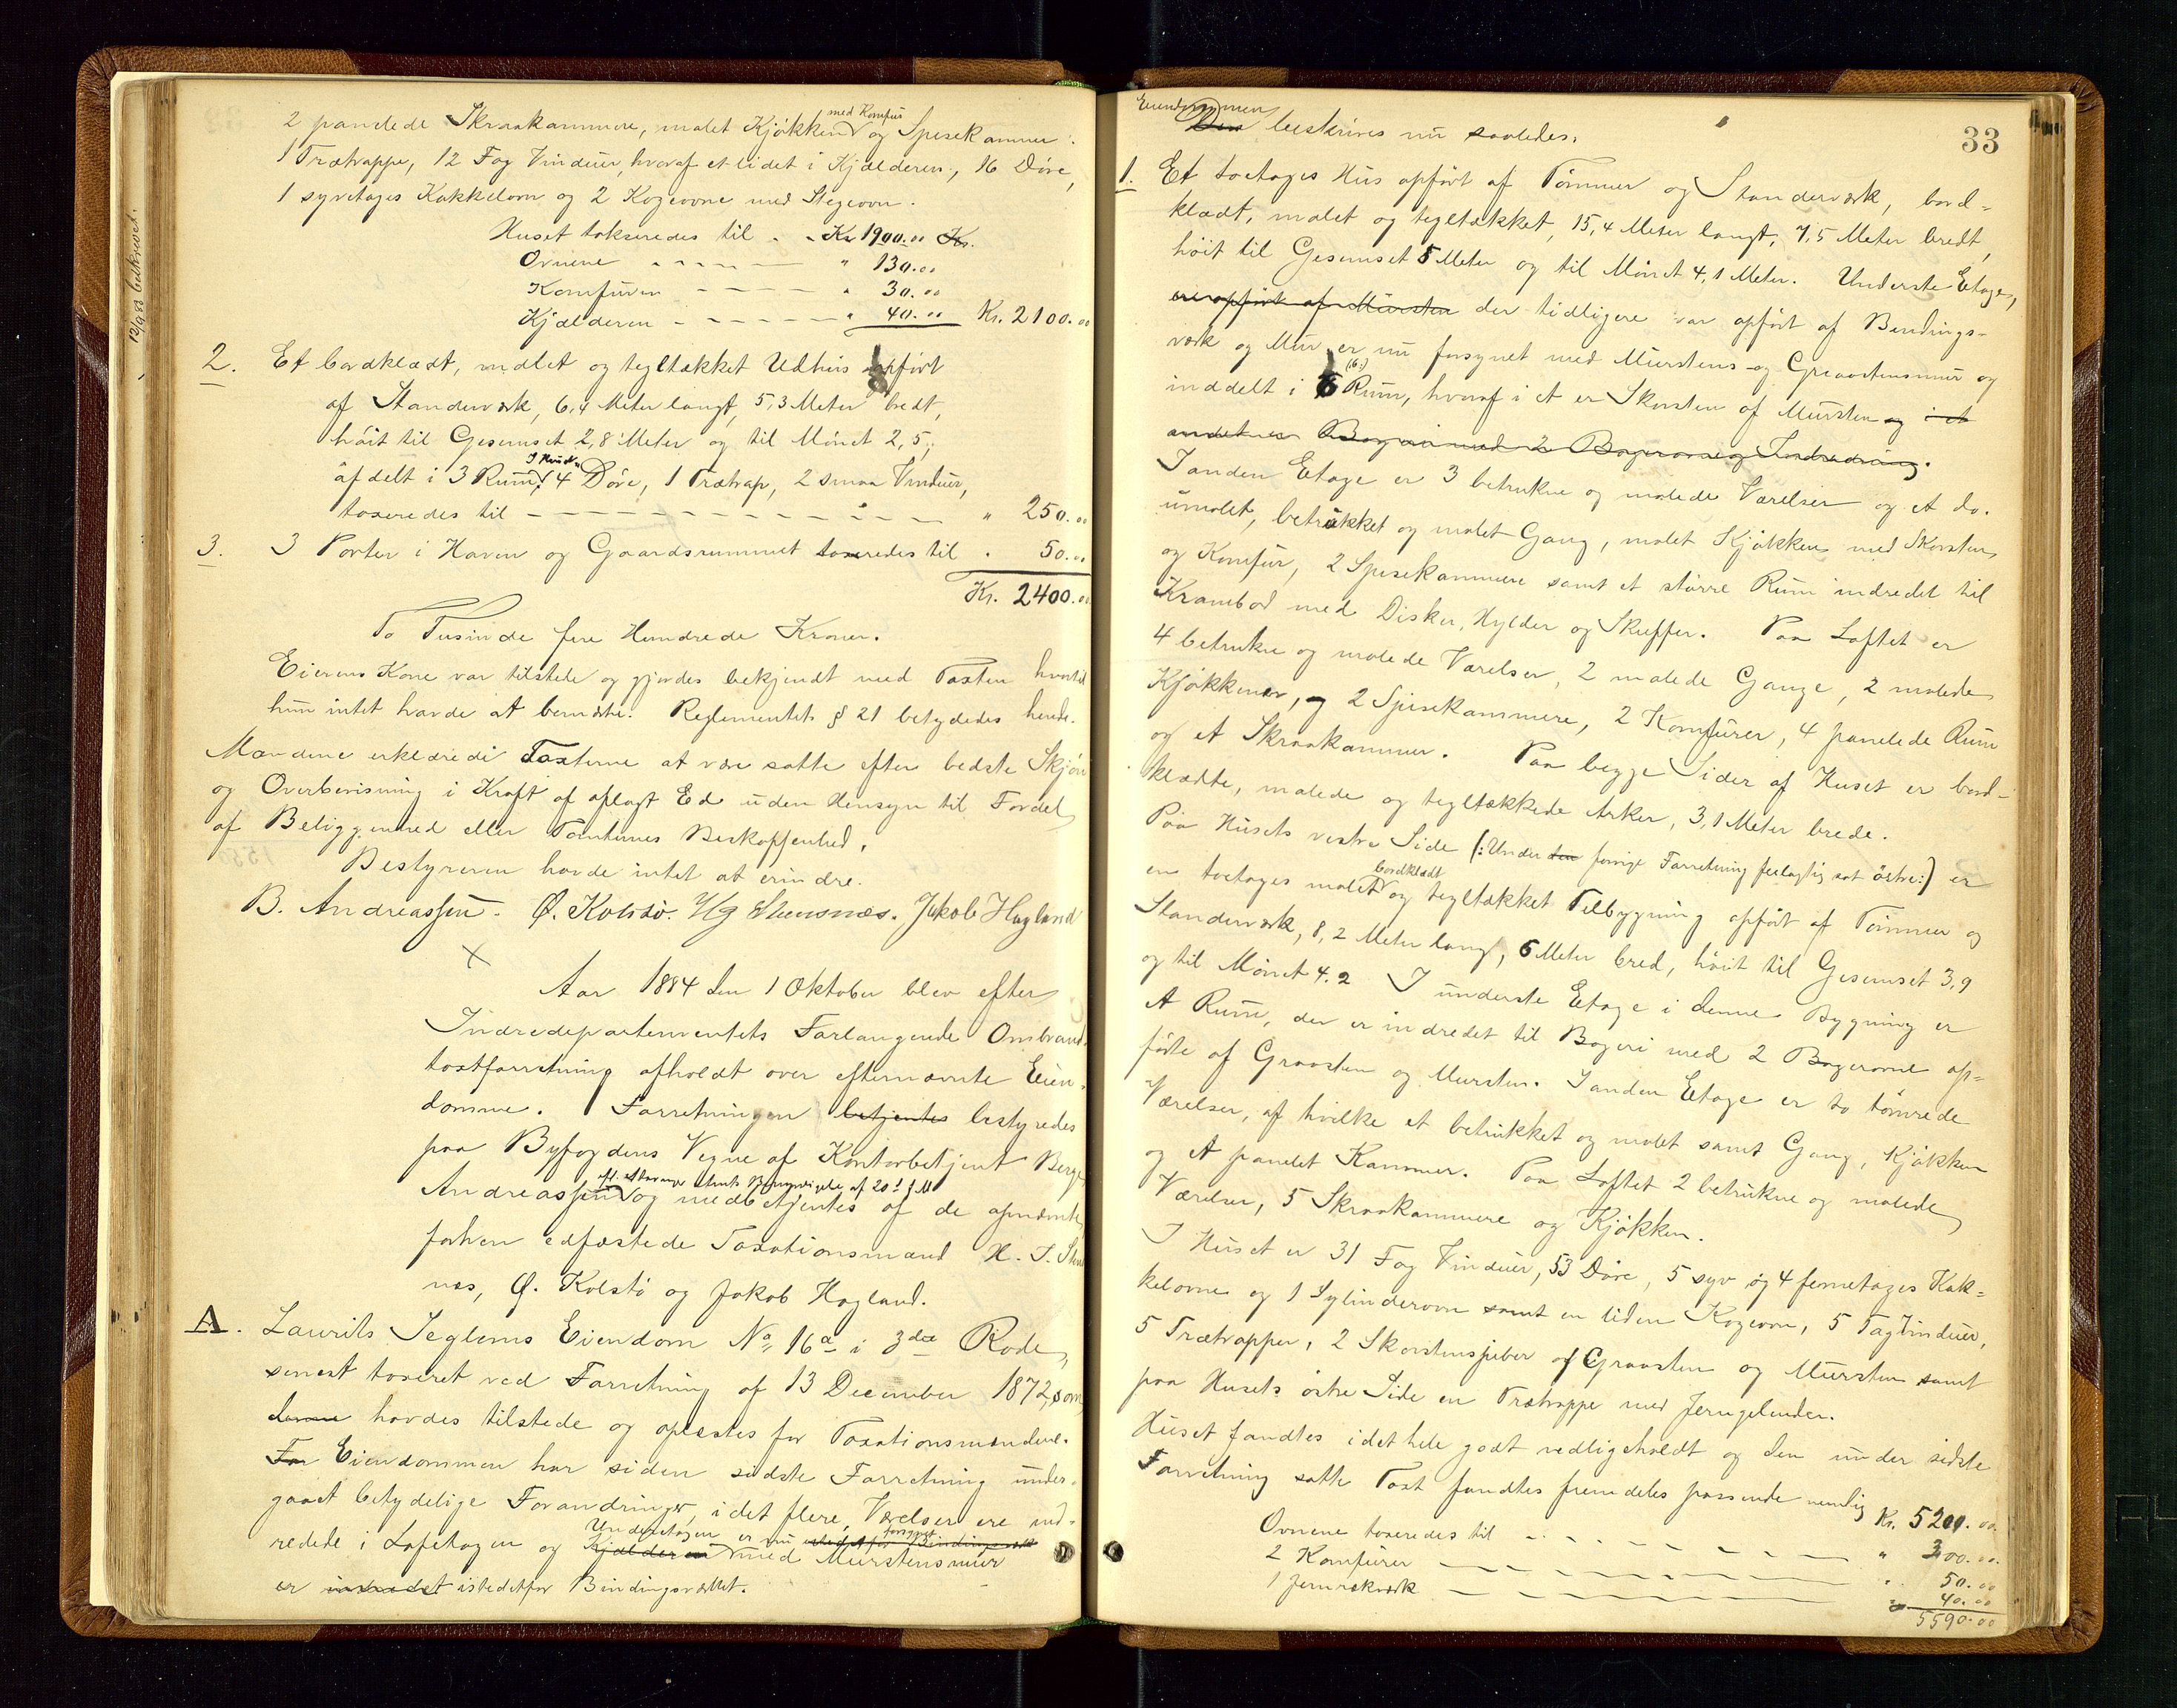 2 panelede Skraakammere, malet Kjøkken med Komfur og Spisekammer.
1 Trætrappe, 12 Fag Vinduer, hvoraf et lidet i Kjælderen, 16 Døre,
1 syvetages Kakkelovn og 2 Kogeovne med Stegeovn.
Huset takseredes til - - Kr 1900.00 Kr.
Ovnene - - - - - " 130.00
Komfuren - - - - " 30.00
Kjælderen - - - - - " 40.00 Kr. 2100.00
2. Et bordklædt, malet og tegltækket Udhus opført
af Standerværk, 6,4 Meter langt, 5,3 Meter bredt,
høit til Gesemset 2,8 Meter og til Mønet 2,5,
afdelt i 3 Rum. I Huset 4 Døre, 1 Trætrap, 2 smaa Vinduer,
taxeredes til - - - - - - - - - - " 250.00
3. 3 Porter i Haven og Gaardsrummet taxeredes til " 50.00
Kr. 2400.00
To Tusinde fire Hundrede Kroner.
Eierens Kone var tilstede og gjordes bekjendt med Taxten hvortil
hun intet havde at bemærke. Reglementets § 21 betydedes hende.
Mændene erklærede Taxterne at være satte efter bedste Skjøn
og Overbevisning i Kraft af aflagt Ed uden Hensyn til Fordel
af Beliggenhed eller Tomternes Beskaffenhed.
Bestyreren havde intet at erindre.
B. Andreassen. Ø. Kolstø. Jakob Hagland
Aar 1884 den 1 Oktober blev efter
Indredepartementets Forlangende Ombrand-
taxtforretning afholdt over efternævnte Eien-
domme. Forretningen betjentes bestyredes
paa Byfogdens Vegne af Kontorbetjent Berge
Andreassen og medbetjentes af de opnævnte
forhen edfæstede Taxationsmænd H. S.
næs, Ø. Kolstø og Jakob Hagland.
A. Laurits Seglems Eiendom No 16a i 3die Rode,
senest taxeret ved Forretning af 13 December 1872, som
denne havdes tilstede og oplæstes for Taxationsmændene.
For Eiendommen har siden sidste Forretning under-
gaaet betydelige Forandringer, idet flere Værelser ere ind-
redede i Loftetagen og Kjælderen Underetagen er nu forsynet med Murstensmur
er indredet istedetfor Bindingsværket.
12/9 93 bekræftet.
33
Eiendommen
Den beskrives nu saaledes.
1. Et toetages Hus opført af Tømmer og Standerværk, bord-
klædt, malet og tegltækket, 15,4 Meter langt, 7,5 Meter bredt,
høit til Gesemset 5 Meter og til Mønet 4,1 Meter. Underste Etage,
er opført af Mursten der tidligere var opført af Bindings-
værk og Mur, er nu forsynet med Murstens- og Graastensmur og
inddelt i 6 (6:) Rum, hvoraf i et er Skorsten af Mursten og i et
andet er Bageri med 2 Bagerovne og Indredning.
I anden Etage er 3 betrukne og malede Værelser og et do.
umalet, betrukket og malet Gang, malet Kjøkken med Skorsten
og Komfur, 2 Spisekammere samt et større Rum indredet til
Krambod med Disker, Hylder og Skuffer. Paa Loftet er
4 betrukne og malede Værelser, 2 malede Gange, 2 malede
Kjøkkener, og 2 Spisekammere, 2 Komfurer, 4 panelede Rum
og et Skraakammer. Paa begge Sider af Huset er bord-
klædte, malede og tegltækkede Arker, 3,1 Meter brede.
Paa Husets vestre Side (: Under den forrige Forretning feilagtig sat østre :) er
en toetages malet bordklædt og tegltækket Tilbygning opført af Tømmer og
Standerværk, 8,2 Meter lang, 6 Meter bred, høit til Gesemset 3,9
og til Mønet 4.2 I underste Etage i denne Bygning er
et Rum, der er indredet til Bageri med 2 Bagerovne op-
førte af Graasten og Mursten. I anden Etage er to tømrede
Værelser, af hvilke et betrukket og malet samt Gang, Kjøkken
og et panelet Kammer. Paa Loftet 2 betrukne og malede
Værelser, 5 Skraakammere og Kjøkken.
I Huset er 31 Fag Vinduer, 53 Døre, 5 syv og 4 femetages Kak-
kelovne og 1 Sylinderovn samt en liden Kogeovn, 5 Tagvinduer,
5 Trætrapper, 2 Skorstenspiber af Graasten og Mursten samt
paa Husets østre Side en Trætrappe med Jerngelender.
Huset fandtes i det hele godt vedligeholdt og den under sidste
Forretning satte Taxt fandtes fremdeles passende nemlig Kr. 5200.00
Ovnene taxeredes til - - - - - - " 300.00
2 Komfurer - - - - - - " 50.00
1 Jernrækværk - - - - - - " 40.00
5590.00